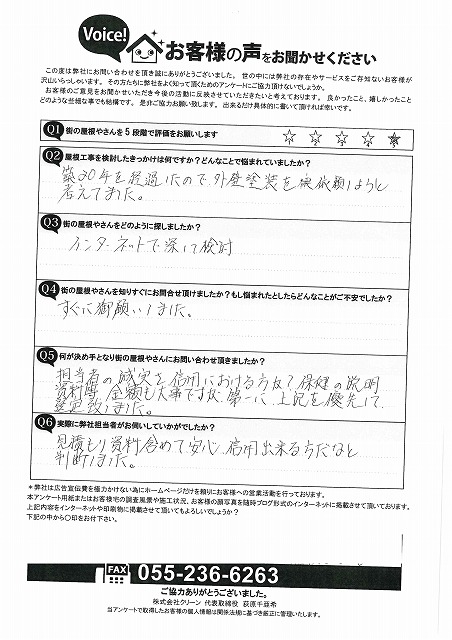 Voice!
お客様の声をお聞かせください
この度は弊社にお問い合わせを頂き誠にありがとうございました。世の中には弊社の存在やサービスをご存知ないお客様が
沢山いらっしゃいます。その方たちに弊社をよく知って頂くためのアンケートにご協力頂けないでしょうか。
お客様のご意見をお聞かせいただき今後の活動に反映させていただきたいと考えております。良かったこと、嬉しかったこと
どのような些細な事でも結構です。是非ご協力お願い致します。出来るだけ具体的に書いて頂ければ幸いです。
Q1 街の屋根やさんを5段階で評価をお願いします ☆ ☆ ☆ ☆ ★
Q2 屋根工事を検討したきっかけは何ですか？どんなことで悩まれていましたか？
築20年を経過したので、外壁塗装を依頼しようと
考えてました。
Q3 街の屋根やさんをどのように探しましたか？
インターネットで、深して検討
Q4 街の屋根やさんを知りすぐにお問合せ頂けましたか？もし悩まれたとしたらどんなことがご不安でしたか？
すぐに御願いしました。
Q5 何が決め手となり街の屋根やさんにお問い合わせ頂きましたか？
担当者の誠実と信用における方なて、保健の説明
資料等、金額も大事ですが、第一に、上記を優先して、
致しました。
Q6 実際に弊社担当者がお伺いしていかがでしたか？
見積もり資料含めて、安心、信用出来る方だなと
判断しました。
＊弊社は広告宣伝費を極力かけない為にホームページだけを頼りにお客様への営業活動を行っております。
本アンケート用紙またはお客様宅の調査風景や施工状況、お客様の顔写真を随時ブログ形式のインターネットに掲載させて頂いております。
上記内容をインターネットや印刷物に掲載させて頂いてもよろしいでしょうか？
下記の中から〇印をお付下さい。
FAX 055-236-6263
ご協力ありがとうございました。
株式会社クリーン 代表取締役 荻原千亜希
当アンケートで取得したお客様の個人情報は関係法規に基づき厳正に管理いたします。